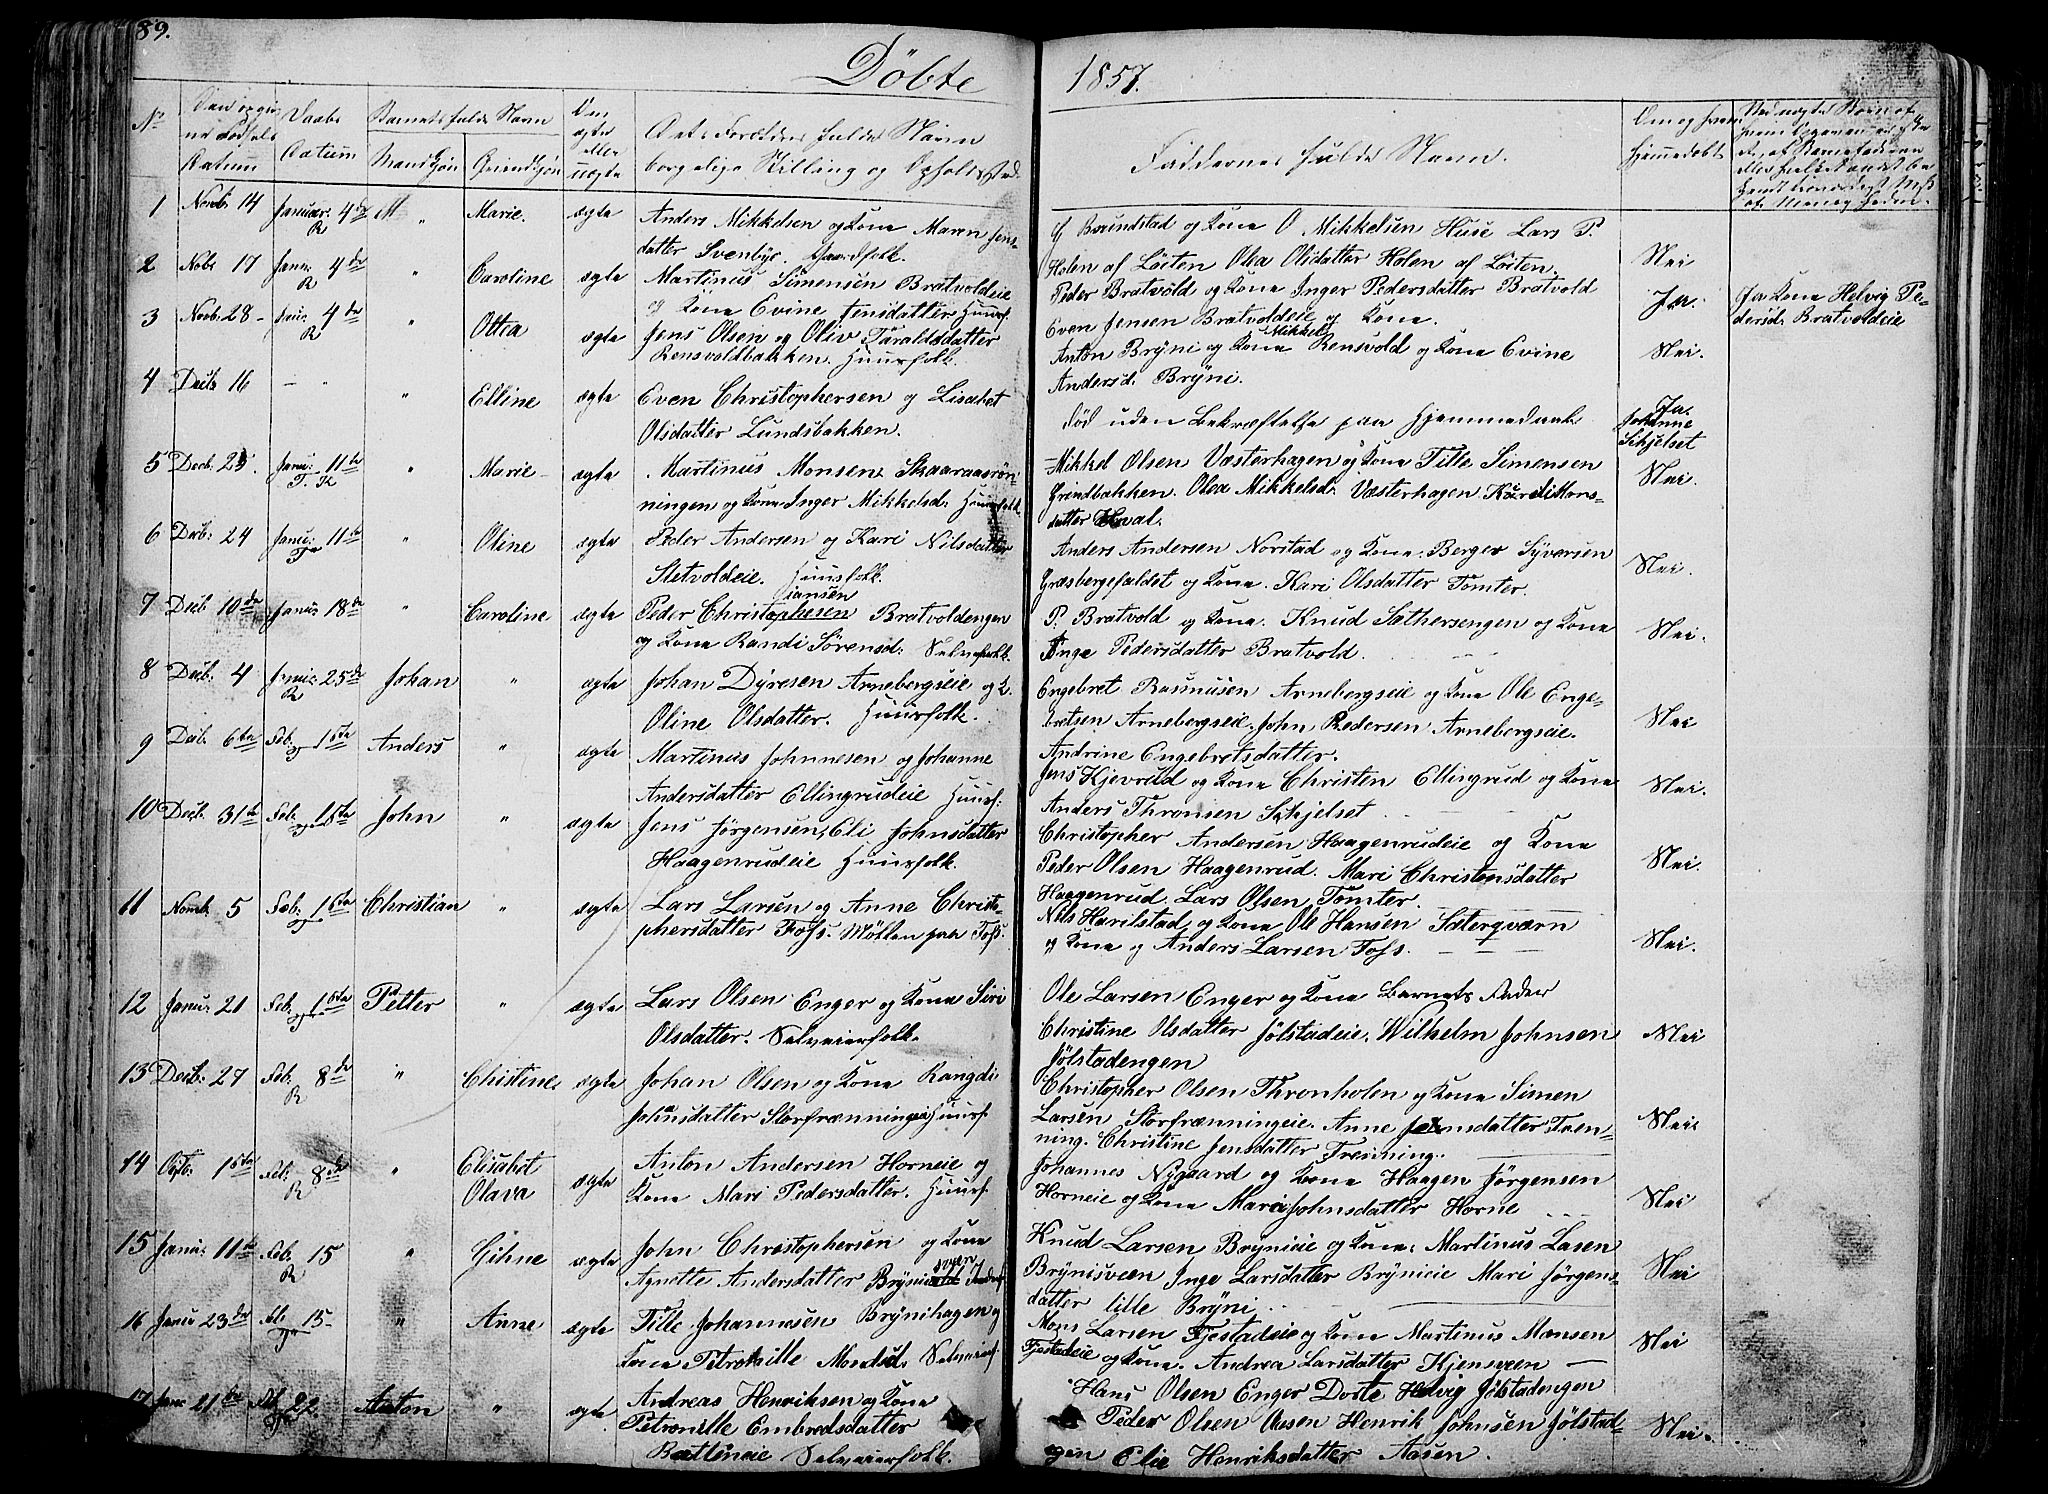 89.
Døbte 1857.
No
Datum
Daabs
Datum
Barnets fulde Navn
Mandkjøn
Qvindekjøn
Om
ægte
eller
uægte
Forældres fulde Navn
borgerlige Stilling og Opholdssted.
Faddernes fulde Navn.
Om og hvem
hjemmedøbt
1 Novb. 14 Januar. 4de R M " Marie. ægte Anders Mikkelsen og Kone Maren Jens-
datter Svenbye. Gaardfolk.
Brundstad og Kone O Mikkelsen Huse Lars P.
Holen af Løiten Olea Olsdatter Holen af Løiten.
Nei
2 Nobr 17 Janr: 4de R " Caroline ægte Martinus Simensen Bratvoldeie
og Kone Evine Jensdatter Huusf.
Peder Bratvold og Kone Inger Pedersdatter Bratvold
Even Jensen Bratvoldeie og Kone.
Ja. Ja Kone Helvig Pe-
dersd. Bratvoldeie
3 Novb. 28 4de R " Ottea ægte Jens Olsen og Oliv Taraldsdatter
Rensvoldbakken. Huusfolk.
Anton Bryni og Kone Mikkel Rensvold og Kone Evine
Andersd. Bryni.
Nei.
4 Decb. 16 — " " Elline ægte Even Christophersen og Lisabet
Olsdatter Lundsbakken.
død uden Bekræftelse paa Hjemmedaab
Ja.
Johanne
Skjelset
5 Decb. 25. Janu: 11te T. K " Marie ægte Martinus Monsen Skaaraasrøn-
ningen og Kone Inger Mikkelsd. Huusfolk.
Mikkel Olsen Væsterhagen og Kone Tille Simensen
Grindbakken. Olea Mikkelsd. Væsterhagen Kari Mons-
datter Hval.
Nei.
6 Decb: 24 Janu: 11te " Oline ægte Peder Andersen og Kari Nilsdatter
Sletvoldeie. Huusfolk.
Anders Andersen Norstad og Kone. Berger Syversen
Græsbergefaldet og Kone. Kari Olsdatter Tomter.
Nei.
7 Decb 10de Janu: 18de " Caroline ægte Peder Christophesen iansen Bratvoldengen
og Kone Randi Sørensd. Selveierfolk.
P. Bratvold og Kone. Knud Sæthersengen og Kone
Inge Pedersdatter Bratvold.
Nei.
8 Decb. 4 25de R Johan " ægte Johan Dyresen Arnebergseie og K.
Oline Olsdatter. Huusfolk.
Engebret Rasmusen Arnebergseie og Kone Ole Enge-
bretsen Arnebergseie. John Pedersen Arnebergseie.
Andrine Engebretsdatter.
Nei
9 Decb. 6te Feb. 15te Anders " ægte Martinus Johnnesen og Johanne
Andersdatter Ellingrudeie Huusf:
Jens Kjevrud og Kone Christen Ellingrud og Kone
Anders Thronsen Skjelset
Nei.
10 Decb. 31te Feb: 15te John " ægte Jens Jørgensen, Eli Johnsdatter
Haagenrudeie Huusfolk.
Christopher Andersen Haagenrudeie og Kone
Peder Olsen Haagenrud. Mari Christensdatter
Haagenrud. Lars Olsen Tomter.
Nei.
11 Novmb. 5 Feb: 15te Christian " ægte Lars Larsen og Anne Christo-
phersdatter Fofs. Møllen paa Fofs.
Nils Harilstad og Kone Ole Hansen Sæterqværn
og Kone og Anders Larsen Fofs.
Nei.
12 Janu: 21 Feb: 15te Petter " ægte Lars Olsen Enger og Kone Siri
Olsdatter. Selveierfolk.
Ole Larsen Enger og Kone Barnets Fader
Christine Olsdatter Jølstadeie. Wilhelm Johnsen
Jølstadengen
Nei
13 Decb. 27 Feb: 8de R " Christine ægte Johan Olsen og Kone Rangdi
Johnsdatter Storfrænningeie Huusf.
Christopher Olsen Thronholen og Kone Simen
Larsen Storfrænningeie. Anne Johnsdatter Fræn-
ning. Christine Jensdatter Frænning.
Nei
14 Octb. 15te Feb: 8de R " Elisabet
Olava ægte Anton Andersen Horneie og
Kone Mari Pedersdatter. Huusf.
Johannes Nygaard og Kone Haagen Jørgensen
Horneie og Kone Mari Johnsdatter Horne
Nei
15 Janu: 11te Feb. 15 R " Gihne ægte John Christophersen og Kone
Agnette Andersdatter Brynisveen
Knud Larsen Brynieie og Kone. Martinus Lasen
Brynisveen Inge Larsdatter Brynieie Mari Jørgens-
datter lille Bryni
Nei
16 Janu 23de 15 " Anne ægte Tille Johannesen Brynihagen og
Kone Petronille Monsd. Selveierf.
Mons Larsen Fjestadeie og Kone Martinus Monsen
Fjestadeie og Kone. Andrea Larsdatter Kjensveen —
Nei
17 Janu 21te 22 Anton " ægte. Andreas Henriksen og Kone
Petronille Embredsdatter
Bætteneie Selveierfolk.
Hans Olsen Enger Dorte Helvig Jølstadengen
Peder Olsen Aasen Henrik Johnsen Jølstad-
gen Elie Henriksdatter Aasen.
Nei.